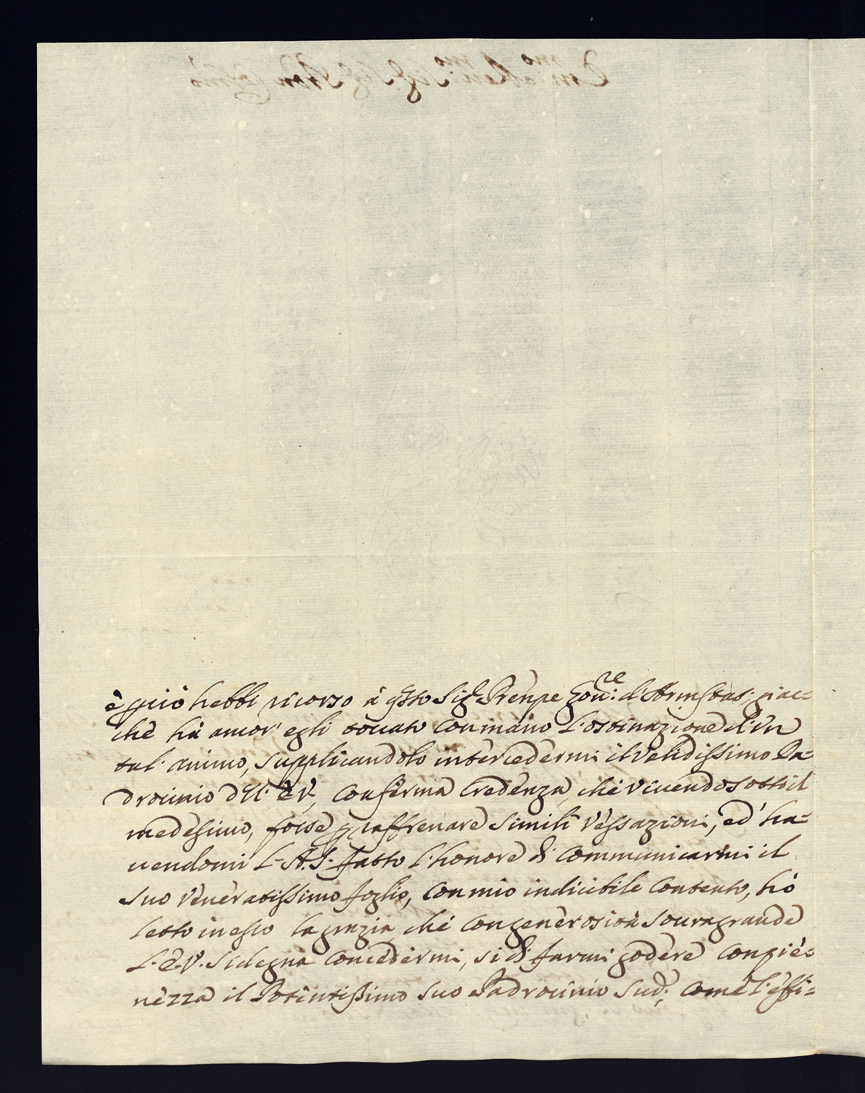 è perciò hebbi ricorso à qsto Sigr Prēnpe Gou.re d'Armstat. giac-
chè hà ancor' egli toccato con mano l'ostinazione d'un
tal' animo, supplicandolo intercedermi il validissimo Pa-
drocinio dell' E.V., con ferma credenza, che vivendo sotto il
medesimo, fosse p raffrenare simili vessazioni, ed' ha-
uendomi L.A.S. fatto l'honore di communicarmi il
suo veneratissimo foglio, con mio indicibile contento, hò
letto in esso la grazia che con generosità souragrande
L'E.V. si degna concedermi, si di farmi godere con pie-
nezza il Potentissimo suo Padrocinio sud.o, come l'effi-